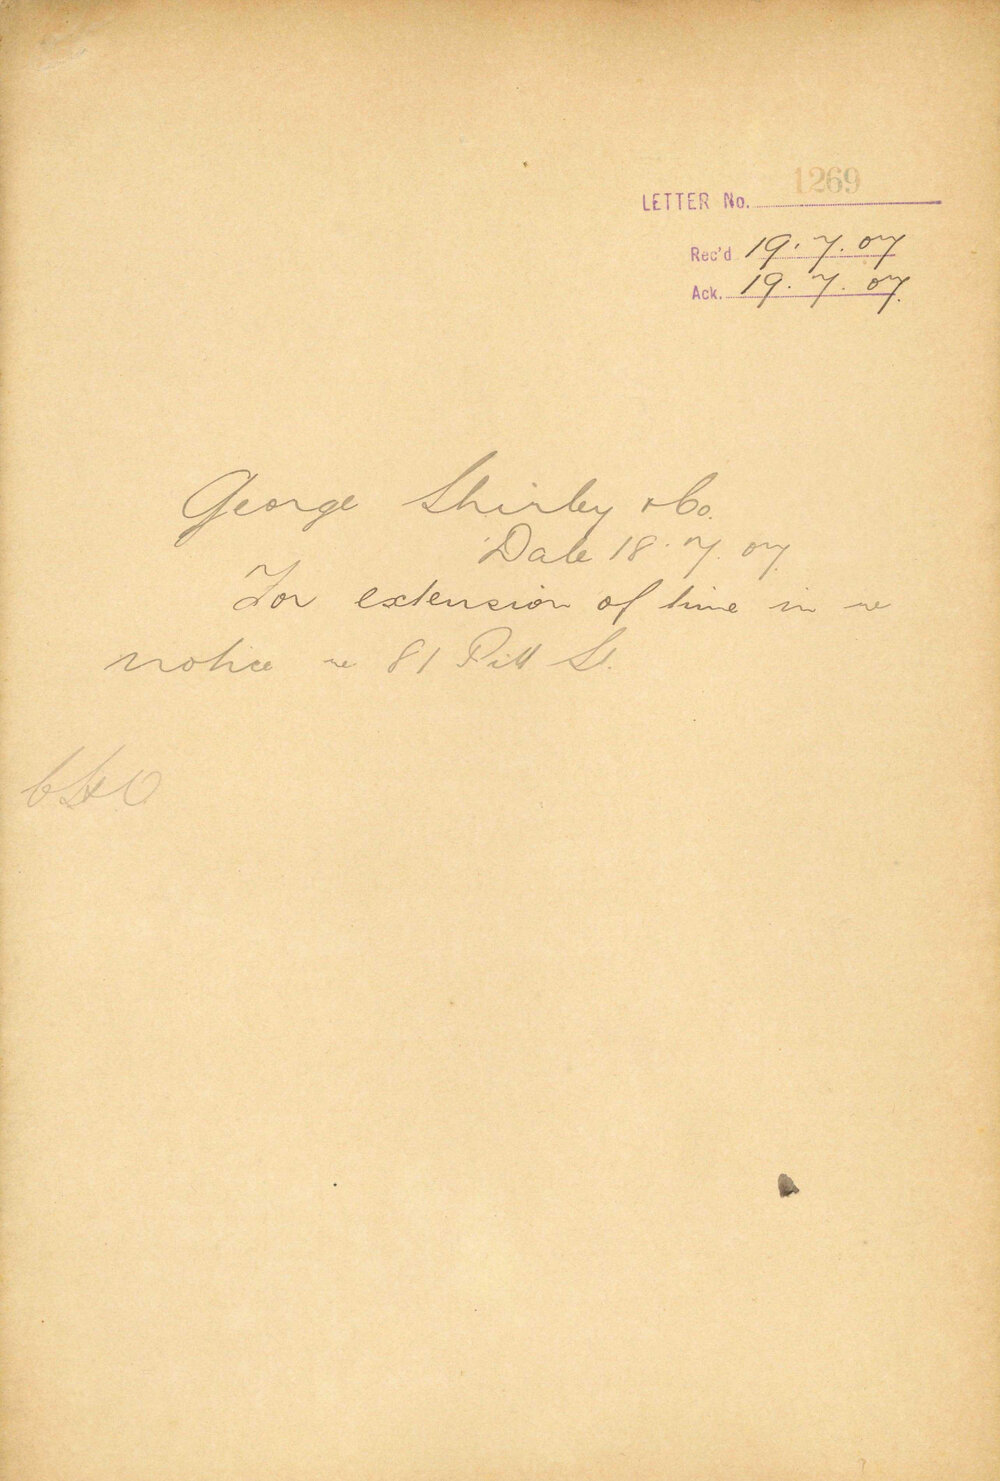 LETTER No. 1269
Rec'd 19.7.07
Ack. 19.7.07.
George Shirley & Co.
Date 18.7.07
For extension of time in re
notice re 81 Pitt St.
C.H.O